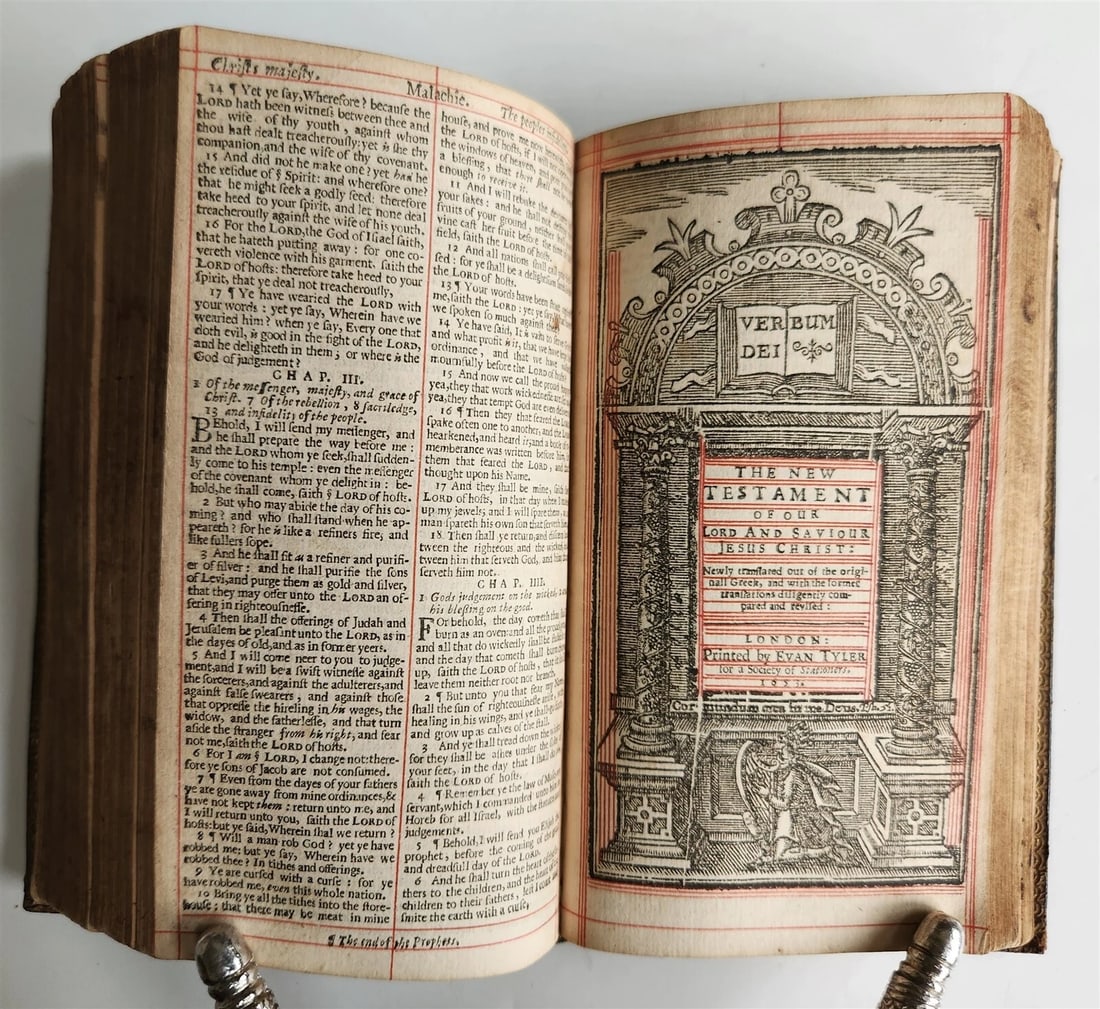 Christs majesty.
Malachie.
The peoples
14 ¶ Yet ye say, Wherefore? because the
LORD hath been witness between thee and
the wife of thy youth, against whom
thou hast dealt treacherously: yet is she thy
companion, and the wife of thy covenant.
15 And did not he make one? yet had he
the residue of ẏ Spirit: and wherefore one?
that he might seek a godly seed: therefore
take heed to your spirit, and let none deal
treacherously against the wife of his youth.
16 For the LORD, the God of Israel saith,
that he hateth putting away: for one co-
vereth violence with his garment, saith the
LORD of hosts: therefore take heed to your
spirit, that ye deal not treacherously,
17 ¶ Ye have wearied the LORD with
your words: yet ye say, Wherein have we
wearied him? when ye say, Every one that
doth evil, is good in the sight of the LORD,
and he delighteth in them; or where is the
God of judgement?
CHAP. III.
1 Of the messenger, majesty, and grace of
Christ. 7 Of the rebellion, 8 sacriledge,
13 and infidelity of the people.
BEhold, I will send my messenger, and
he shall prepare the way before me:
and the LORD whom ye seek, shall sudden-
ly come to his temple: even the messenger
of the covenant whom ye delight in: be-
hold, he shall come, saith ẏ LORD of hosts.
2 But who may abide the day of his co-
ming? and who shall stand when he ap-
peareth? for he is like a refiners fire, and
like fullers sope.
3 And he shall sit as a refiner and purifi-
er of silver: and he shall purifie the sons
of Levi, and purge them as gold and silver,
that they may offer unto the LORD an of-
fering in righteousnesse.
4 Then shall the offerings of Judah and
Jerusalem be pleasint unto the LORD, as in
the dayes of old, and as in former yeers.
5 And I will come neer to you to judge-
ment, and I will be a swift witnesse against
the sorcerers, and against the adulterers, and
against false swearers, and against those
that oppresse the hireling in his wages, the
widow, and the fatherlesse, and that turn
aside the stranger from his right, and fear
not me, saith the LORD of hosts.
6 For I am ẏ LORD, I change not: there-
fore ye sons of Jacob are not consumed.
7 ¶ Even from the dayes of your fathers
ye are gone away from mine ordinances, &
have not kept them: return unto me, and
I will return unto you, saith the LORD of
hosts: but ye said, Wherein shal we return?
8 ¶ Will a man rob God? yet ye have
robbed me: but ye say, Wherein have we
robbed thee? In tithes and offerings.
9 Ye are cursed with a curse: for ye
have robbed me, even this whole nation.
10 Bring ye all the tithes into the store-
house: that there may be meat in mine
house, and prove me now
the LORD of hosts, if I will
the windows of heaven, and
a blessing, that there shall
enough to receive it.
11 And I will rebuke the
your sakes: and he shall not
fruits of your ground, neither
vine cast her fruit before the
field, saith the LORD of hosts.
12 And all nations shall call
sed: for ye shall be a delightsom
the LORD of hosts.
13 ¶ Your words have been
me, saith the LORD: yet ye say,
we spoken so much against
14 Ye have said, It is vain to serve
and what profit is it, that we have
ordinance, and that we have
mournfully before the LORD of
15 And now we call the proud
yea, they that work wickednesse
yea, they that tempt God are even
16 ¶ Then they that feared the
spake often one to another, and the
hearkened, and heard it, and a book of
memberance was written before him,
them that feared the LORD, and
thought upon his Name.
17 And they shall be mine, saith
LORD of hosts, in that day when I
up my jewels; and I will spare them,
man spareth his own son that serveth
18 Then shall ye return, and
tween the righteous and the
tween him that serveth God, and him
serveth him not.
CHAP. IIII.
1 Gods judgement on the wicked,
his blessing on the good.
FOr behold, the day cometh that
burn as an oven: and all the
and all that do wickedly shall be
and the day that cometh shall burn
up, saith the LORD of hosts, that it
leave them neither root nor branch.
2 ¶ But unto you that fear my Name
shall the sun of righteousnesse
healing in his wings, and ye shall
and grow up as calves of the stall.
3 And ye shall tread down the
for they shall be ashes under the
your feet, in the day that I shall
saith the LORD of hosts.
4 ¶ Remember ye the law of Moses
servant, which I commanded unto him
Horeb for all Israel, with the
judgements.
5 ¶ Behold, I will send you
prophet, before the coming of
and dreadfull day of the LORD.
6 And he shall turn the heart
thers to the children, and the heart
children to their fathers, lest I come
smite the earth with a curse,
¶ The end of the Prophets.
VERBUM
DEI
THE NEW
TESTAMENT
OF OUR
LORD AND SAVIOUR
JESUS CHRIST:
Newly translated out of the origi-
nall Greek, and with the former
translations diligently com-
pared and revised:
LONDON:
Printed by EVAN TYLER
for a Society of Stationers.
Cor mundum crea in me Deus. Ps. 51.